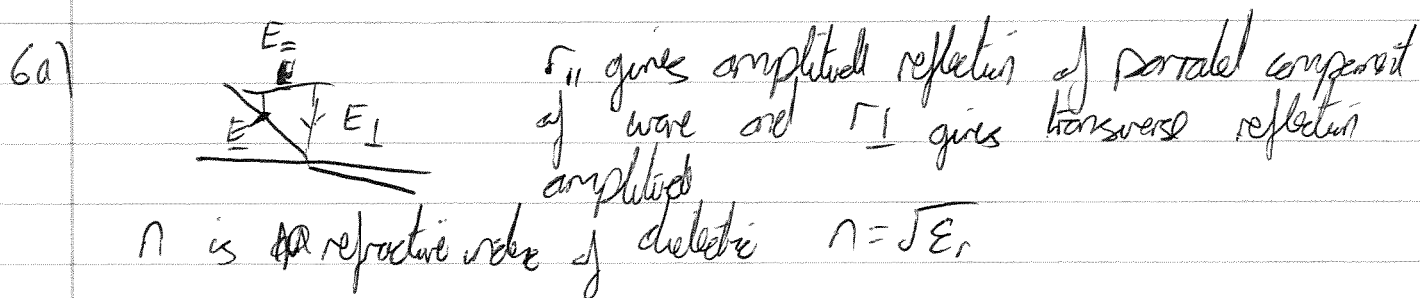 6a)
E=
E
E⊥
r∥ gives amplitude reflection of parralel component
of wave and r⊥ gives transverse reflection
amplitude
n is refractive index of dielectric n = √εr